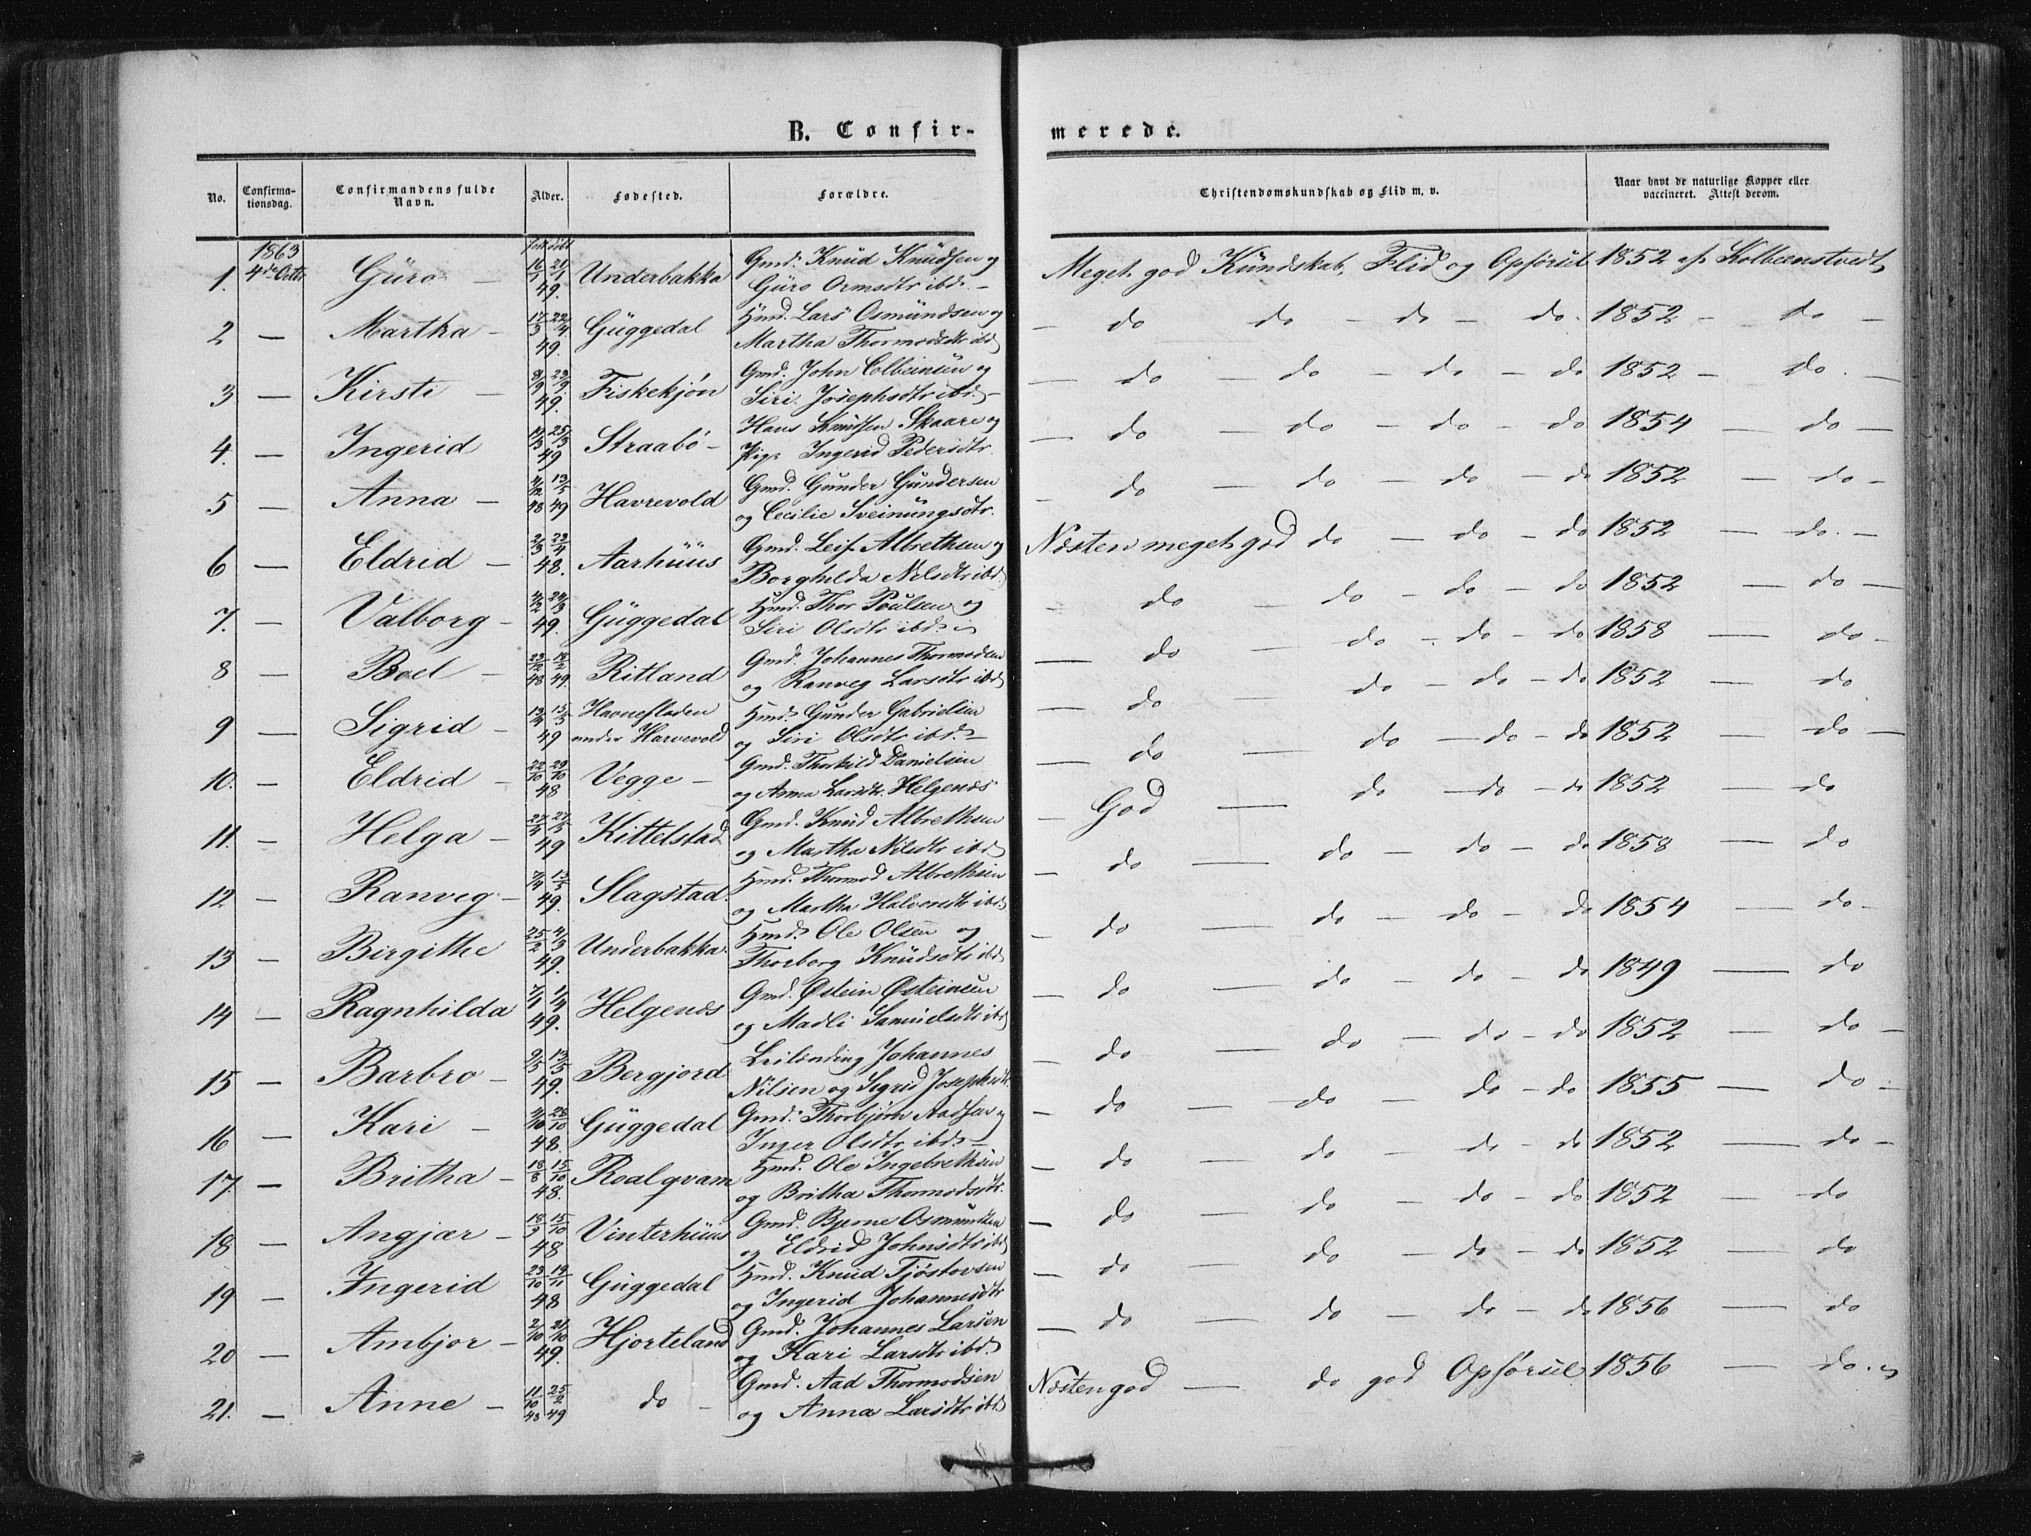 B. Confir-
merede.
No.
Confirma-
tionsdag.
Confirmandens fulde
Navn.
Alder.
Fødested.
Forældre.
Christendomskundskab og Flid m. v.
Naar havt de naturlige Kopper eller
vaccineret. Attest derom.
1863
1. 4de Octbr Güro – 49. Underbakka Gmd. Knud Knüdsen og
Güro Ormsdtr ibd. –
Meget god Kündskab, Flid og Opførsel 1852 af Kolbeenstvedt
2 — Martha – 17/3 22/4 49. Güggedal Hmd. Lars Osmündsen og
Martha Thormodsdtr ibd
— do do – do – do. 1852 – do –
3 — Kirsti – 8/9 23/9 49. Fiskekjón Gmd. John Colbeinsen og
Siri Josephsdtr ibd. –
— do — do – do – do 1852 – do. —
4. — Ingerid 49 Straabó – Hans Knutsen Skaare og
Pige Ingerid Pedersdtr.
— do — do – do – do 1854 — do —
5 — Anna – 48 13/5 49 Havrevold Gmd. Gunder Gundersen
og Cecilie Sveinungsdtr.
– do — do – do – do 1852 — do –
6 — Eldrid – 48. Aarhüus Gmd. Leif Albrethsen og
Borghilda Nilsdtr ibd.
Næsten meget god do – do – do 1852 — do. –
7. — Valborg – 49. Güggedal Hmd. Thor Poulsen og
Siri Olsdtr ibd. –
– do — do – do – do 1852 — do –
8 — Boel – 48 49. Ritland Gmd. Johannes Thormodsen
og Ranveg Larsdtr ibd
— do do – do – do 1858 — do –
9 — Sigrid – 49 Havnefladen
under Harvevold
Hmd. Gunder Gabrielsen
og Siri Olsdtr ibd. –
— do — do – do – do 1852 — do
10. — Eldrid – 22/10 29/10 48 Vegge – Gmd. Thorkild Danielsen
og Anna Larsdtr Helgenæs
— do — do – do – do 1852 — do –
11. — Helga – 49 Kittelstad Gmd. Knud Albrethsen
og Martha Nilsdtr ibd
– God — do – do – do 1852 — do
12 — Ranveg – 49. Slagstad. Hmd. Thormod Albrethsen
og Martha Halvorsdtr ibd
– do — do – do – do 1858 — do
13 — Birgithe 25/2 4/3 49. Underbakka. Hmd. Ole Olsen og
Thorborg Knüdsdtr ibd
– do — do – do – do 1854 — do –
14 — Ragnhilda 49. Helgenæs Gmd. Østein Østeinsen
og Madli Samüelsdtr ibd
– do — do – do – do 1849 — do
15 — Barbro – 49. Bergjord Leilending Johannes
Nilsen og Sigrid Josephsdtr
– do — do – do – do 1852 — do –
16 — Kari – 48. Güggedal Gmd. Thorbjørn Aadsen og
Inger Olsdtr ibd. –
– do — do – do – do 1855 — do –
17. — Britha – 18/8 15/10 48. Roalqvam Hmd. Ole Ingebrethsen
og Britha Thormodsdtr.
– do — do – do – do 1852 — do –
18 — Angjær – 18/9 15/10 48 Vinterhüus Gmd. Bjerne Osmundsen
og Eldrid Johnsdtr ibd
– do — do – do – do 1852 — do
19 — Ingerid 23/10 19/11 48 Güggedal Hmd. Knud Tjøstovsen
og Ingerid Johannesdtr
– do — do – do – do 1852 — do
20 — Ambjor – 2/10 21/10 49. Hjorteland Gmd. Johannes Larsen
og Kari Larsdtr ibd
— do — do – do – do 1856 — do
21. — Anne – 11/10 48 25/2 49 do – Gmd. Aad Thormodsen
og Anna Larsdtr ibd
Næsten god — do god Opførsel 1856 — do. –